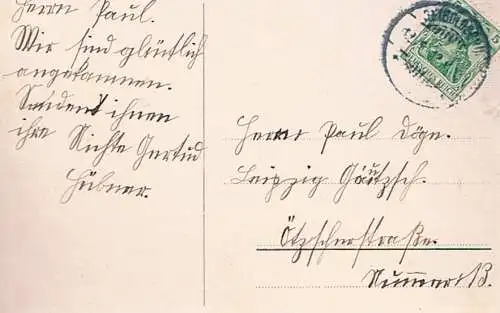 Herrn Paul.
Wir sind glücklich
angekommen.
Sendet ihnen
ihre Nichte Gertud
Hübner.
Herrn Paul Döge.
Leipzig Gautzsch.
Ötzscherstraße.
Nummer